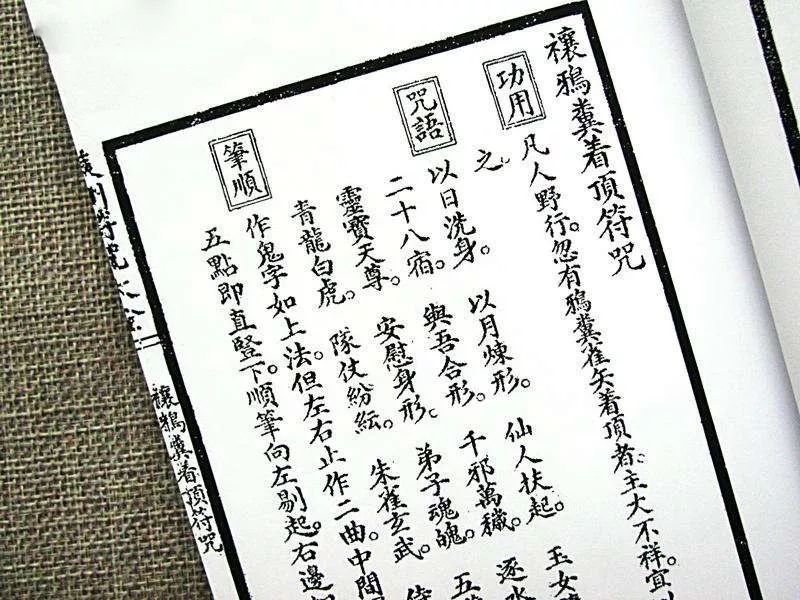 禳鴉糞着頂符咒
功用
凡人野行。忽有鴉糞雀矢着頂者。主大不祥宜
之
咒語
以日洗身。以月煉形。仙人扶起。玉女
二十八宿。與吾合形。千邪萬穢。逐水
靈寶天尊。安慰身形。弟子魂魄。五
青龍白虎。隊仗紛紜。朱雀玄武。
筆順
作鬼字如上法。但左右止作二曲。中間
五點即直豎下。順筆向左剔起。右邊
州符咒大全二
禳鴉糞着頂符咒